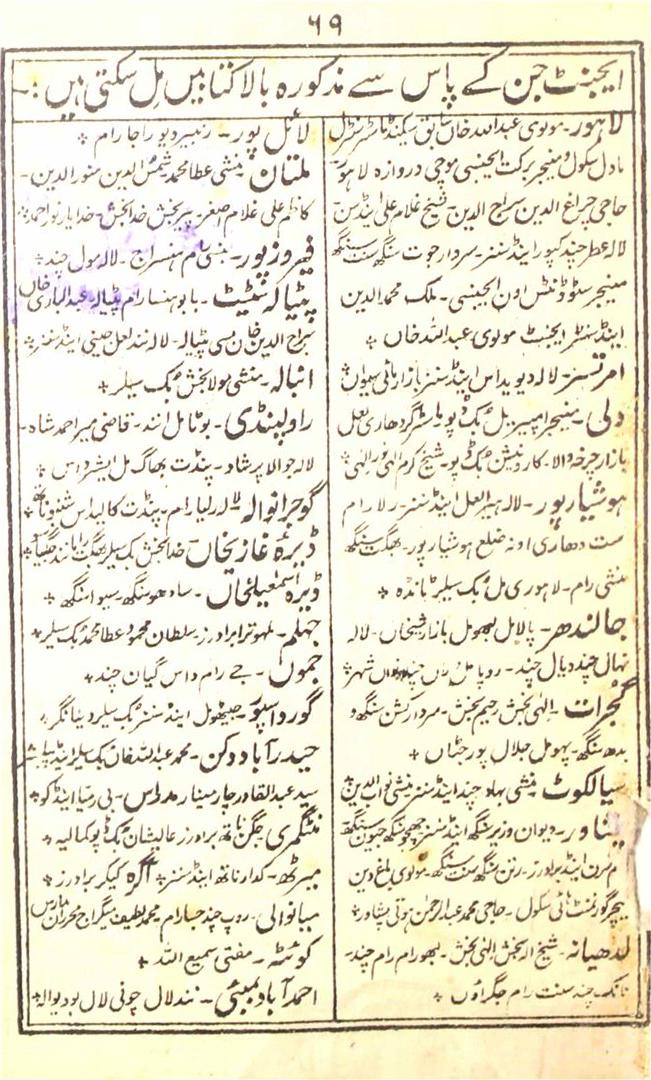 ۶۹
ایجنٹ جن کے پاس سے مذکورہ بالا کتابیں مل سکتی ہیں:۔
لاہور۔ مولوی عبداللہ خاں سابق سیکنڈ ماسٹر سنٹرل
ماڈل سکول و منیجر برکت ایجنسی موچی دروازہ لاہور۔
حاجی چراغ الدین سراج الدین۔ شیخ غلام علی اینڈ سن
لالہ عطر چند کپور اینڈ سنز۔ سردار جوت سنگھ سنت سنگھ
منیجر سٹوڈنٹس اون ایجنسی۔ ملک محمد الدین
اینڈ سنز ایجنٹ مولوی عبداللہ خاں ؞
امرتسر۔ لالہ دیویداس اینڈ سنز بازار مائی سیواں ؞
دلی۔ منیجر امپیریل بک ڈپو ماسٹر گردھاری لعل
بازار چرخہ والا۔ کارونیشن بک ڈپو۔ شیخ کرم الہی نور الہی ؞
ہوشیارپور۔ لالہ ہیرا لعل اینڈ سنز۔ رلا رام
ست دھاری اونہ ضلع ہوشیارپور۔ بھگت سنگھ
منشی رام۔ لاہوری مل بک سیلر ٹانڈہ ؞
جالندھر۔ پالا مل پھول مل بازار شیخاں۔ لالہ
نہال چند دیال چند۔ روپا مل
گجرات۔ الہی بخش رحیم بخش۔ سردار کشن سنگھ و
بدھ سنگھ۔ پھومل جلال پور جٹاں ؞
سیالکوٹ۔ منشی بہادر چند اینڈ سنز منشی نواب الدین
پشاور۔ دیوان وزیر سنگھ اینڈ سنز چھجو سنگھ جیون سنگھ
اینڈ برادرز۔ رتن سنگھ سنت سنگھ۔ مولوی بلاغ دین
ٹیچر گورنمنٹ ہائی سکول۔ حاجی محمد عبدالرحمن ہوتی پشاور ؞
لدھیانہ۔ شیخ اللہ بخش الہی بخش۔ بھورام رام چند۔
نانک چند سنت رام جگراؤں ؞
لائل پور۔ رنبیر دیو راجا رام ؞
ملتان۔ منشی عطا محمد شمس الدین منور الدین۔
کاظم علی غلام اصغر۔ پیر بخش خدا بخش۔ خدا یار نور احمد ؞
فیروزپور۔ منسی رام ہنسراج۔ لالہ مول چند ؞
پٹیالہ سٹیٹ۔ بابو ہنسا رام پٹیالہ۔ عبدالباری خاں
سراج الدین خاں بسی پٹیالہ۔ لالہ نند لعل جینی اینڈ سنز ؞
انبالہ۔ منشی مولا بخش بک سیلر ؞
راولپنڈی۔ بوٹا مل انند۔ قاضی میر احمد شاہ۔
لالہ جوالا پرشاد۔ پنڈت بھاگ مل ایشر داس ؞
گوجرانوالہ۔ لالہ رلیا رام۔ پنڈت کالیداس شنبوناتھ ؞
ڈیرۂ غازیخاں۔ خدا بخش بک سیلر بھگت رامانند
ڈیرہ اسمٰعیلخاں۔ سادھو سنگھ سیوا سنگھ ؞
جہلم۔ ملہوترا برادرز سلطان محمود عطا محمد بک سیلر ؞
جموں۔ جے رام داس گیان چند ؞
گورداسپور۔ جیٹھومل اینڈ سنز بک سیلر دینانگر ؞
حیدرآباد دکن۔ محمد عبداللہ خان بک سیلر اینڈ پبلشر
سید عبدالقادر چار مینار مدراس۔ بی رمیا اینڈ کو ؞
منٹگمری جگن ناتھ برادرز عالیشان بک ڈپو کمالیہ ؞
میرٹھ۔ کدار ناتھ اینڈ سنز ؞ آگرہ کیگر برادرز ؞
میانوالی۔ روپ چند جسا رام محمد لطیف سیگراج
کوئٹہ۔ مفتی سمیع اللہ ؞
احمدآباد بمبئی۔ نند لال چونی لال بودیوالہ ؞